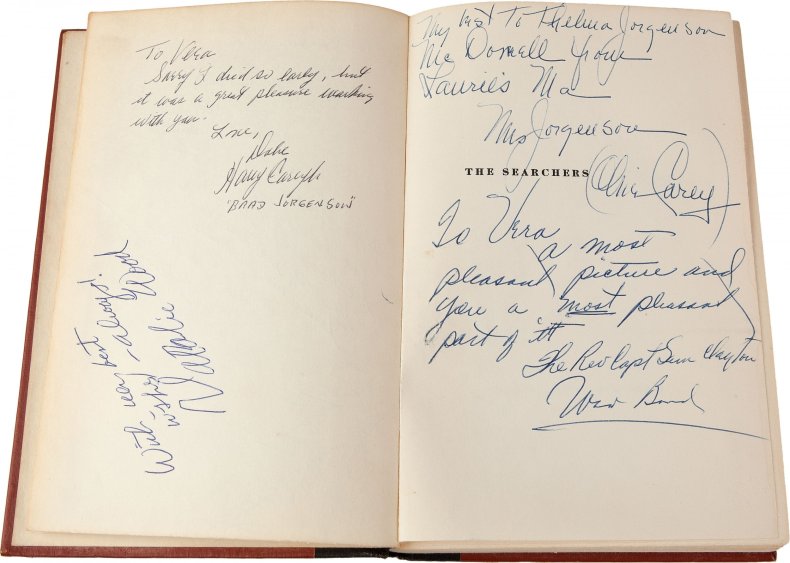 To Vera
Sorry I died so early, but
it was a great pleasure working
with you.
Love,
Dobe
Harry Carey Jr
"BRAD JORGENSON"
With very best
wishes - always!
Natalie Wood
My best to Thelma Jorgenson
Mc Donell your
Laurie's Ma
Mrs Jorgenson
THE SEARCHERS
(Olive Carey)
To Vera
a most
pleasant picture and
you a most pleasant
part of it
The Rev Capt Sam Clayton
Ward Bond